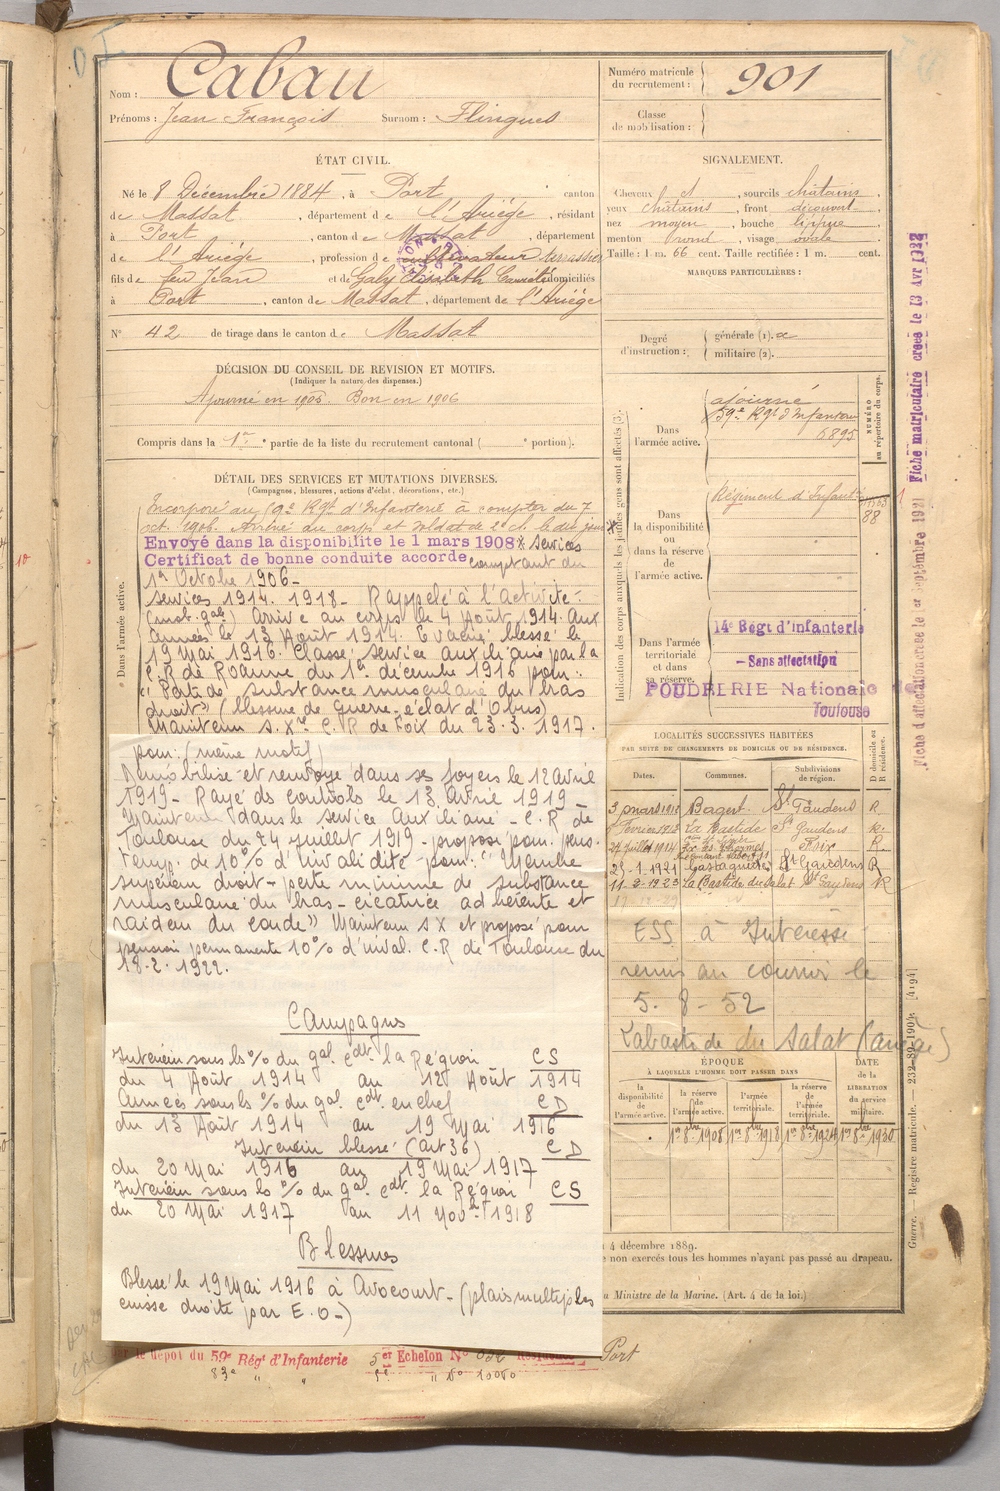 Nom : Cabau
Prénoms : Jean François Surnom : Flingues
Numéro matricule du recrutement : 901
Classe de mobilisation :
ÉTAT CIVIL.
Né le 8 Décembre 1884, à Port canton
de Massat, département de l'Ariége, résidant
à Port, canton de Massat, département
de l'Ariége, profession de cultivateur terrassier
fils de feu Jean et de Galy Elisabeth domiciliés
à Port, canton de Massat, département de l'Ariége
N° 42 de tirage dans le canton de Massat
SIGNALEMENT.
Cheveux et, sourcils châtains,
yeux châtains, front découvert,
nez moyen, bouche lippue,
menton rond, visage ovale.
Taille : 1 m. 66 cent. Taille rectifiée : 1 m. cent.
MARQUES PARTICULIÈRES :
Degré d'instruction : générale (1).
militaire (2).
DÉCISION DU CONSEIL DE REVISION ET MOTIFS.
(Indiquer la nature des dispenses.)
Ajourné en 1905. Bon en 1906
Compris dans la 1re partie de la liste du recrutement cantonal ( e portion).
DÉTAIL DES SERVICES ET MUTATIONS DIVERSES.
(Campagnes, blessures, actions d'éclat, décorations, etc.)
Dans l'armée active.
Incorporé au 59e Rgt d'Infanterie à compter du 7
oct. 1906. Arrivé au corps et soldat de 2e cl. le dit jour
Envoyé dans la disponibilite le 1 mars 1908 * services
Certificat de bonne conduite accorde comptant du
1er Octobre 1906 -
Services 1914. 1918 - Rappelé à l'activité -
(mob. gale) Arrivé au corps le 4 Août 1914. Aux
Armées le 13 Août 1914. Evacué blessé le
19 Mai 1916. Classé service auxiliaire par la
C.R de Roanne du 1er décembre 1916 pour :
"Perte de substance musculaire du bras
droit" (blessure de guerre - éclat d'Obus)
Maintenu s. Xre C.R de Foix du 23.3.1917.
pour : (même motif)
Démobilisé et renvoyé dans ses foyers le 12 Avril
1919 - Rayé des controls le 13 Avril 1919 -
Maintenu dans le service Auxiliaire - C.R de
Toulouse du 24 juillet 1919 - proposé pour pens.
temp. de 10% d'invalidité - pour : "Membre
supérieur droit - perte minime de substance
musculaire du bras - cicatrice adhérente et
raideur du coude" Maintenu s X et proposé pour
pension permanente 10% d'inval. C.R de Toulouse du
18. 2. 1922.
Campagnes
Intérieur sous ls % du gal. cdt. la Région CS
du 4 Août 1914 au 12 Août 1914
Armées sous ls % du gal. cdt. en chef CD
du 13 Août 1914 au 19 Mai 1916
Intérieur blessé (art 36) CD
du 20 Mai 1916 au 19 Mai 1917
Intérieur sous ls % du gal. cdt. la Région CS
du 20 Mai 1917 au 11 Novbre 1918
Blessures
Blessé le 19 Mai 1916 à Avocourt - (plaies multiples
cuisse droite par E.O -)
le dépôt du 59e Régt d'Infanterie 5er Echelon N° Port
83e " " " No 10050
Indication des corps auxquels les jeunes gens sont affectés (3).
NUMÉRO au répertoire du corps.
Dans l'armée active.
ajourné
59e Rgt d'Infanterie
6895
Dans la disponibilité ou dans la réserve de l'armée active.
Régiment d'Infanterie
88
Dans l'armée territoriale et dans sa réserve.
14e Regt d'Infanterie
- Sans affectation
POUDRERIE Nationale de
Toulouse
LOCALITÉS SUCCESSIVES HABITÉES
PAR SUITE DE CHANGEMENTS DE DOMICILE OU DE RÉSIDENCE.
Dates. Communes. Subdivisions de région. D domicile ou R résidence.
3 mars 1912 Bagert St Gaudens R
Février 1913 La Bastide St Gaudens R.
21 juillet 1914 Foix R.
25-1-1921 Castagnède St Gaudens R
11-2-1923 La Bastide du Salat St Gaudens R
ESS à Intéressé
remis au courrier le
5-8-52
Labastide du Salat
ÉPOQUE
À LAQUELLE L'HOMME DOIT PASSER DANS
la disponibilité de l'armée active. la réserve de l'armée active. l'armée territoriale. la réserve de l'armée territoriale. DATE de la LIBÉRATION du service militaire.
1er 8bre 1908 1er 8bre 1918 1er 8bre 1924 1er 8bre 1930
4 décembre 1889.
non exercés tous les hommes n'ayant pas passé au drapeau.
u Ministre de la Marine. (Art. 4 de la loi.)
Guerre. — Registre matricule. — 232-89-1904. [4194]
Fiche d'affectation creee le 1er Septembre 1921 Fiche matriculaire creee le 13 Avr 1922